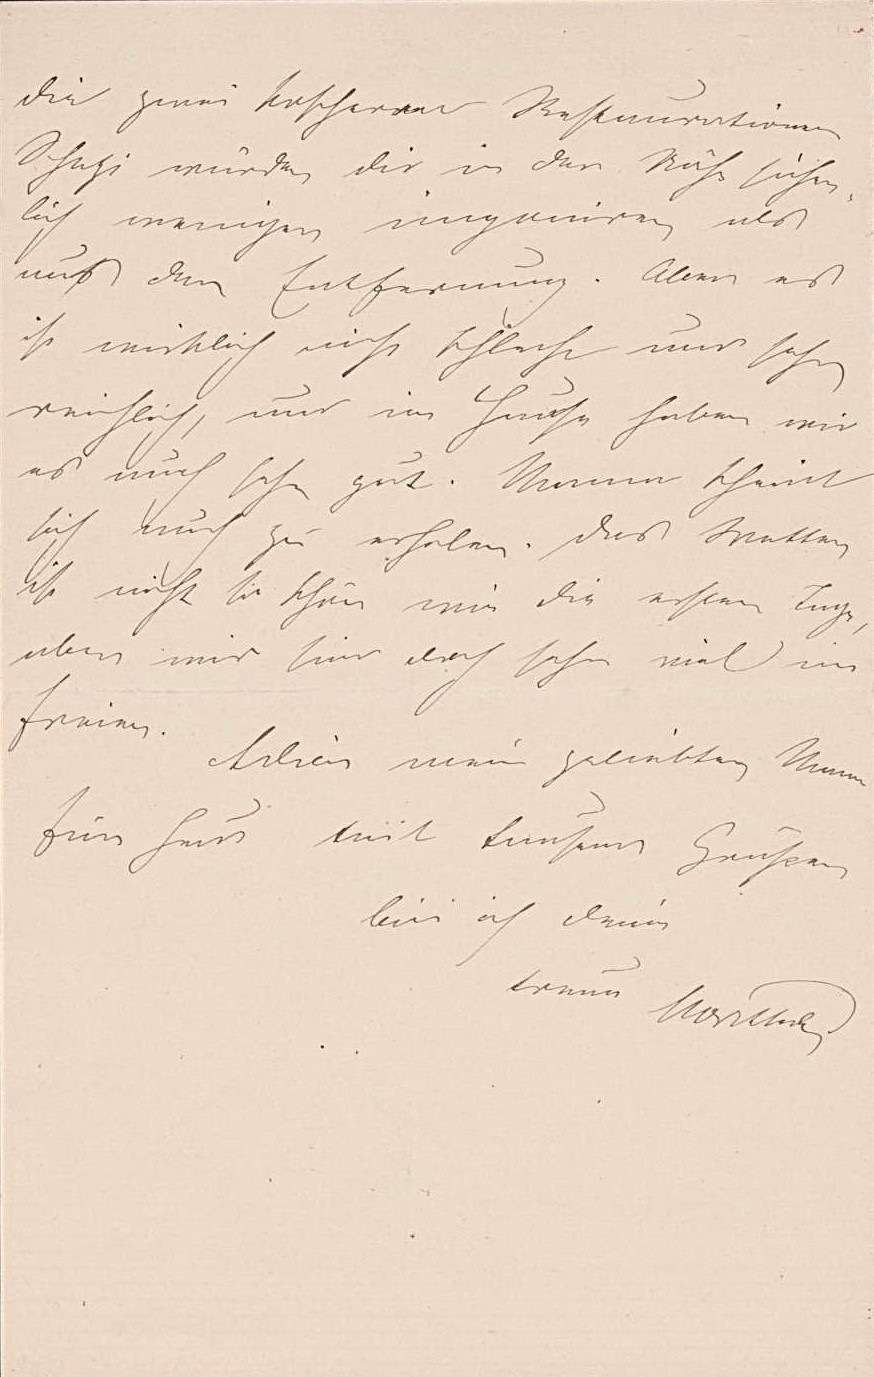 die zwei koscheren Restaurationen
Schatzi würden dir in der Nähe sicher-
lich weniger imponiren als
aus der Entfernung. Aber es
ist wirklich nicht schlecht und sehr
reichlich, und im Hause haben wir
es auch sehr gut. Mama scheint
sich auch zu erholen. Das Wetter
ist nicht so schön wie die ersten Tage,
aber wir sind doch sehr viel im
Freien.
Adieu mein geliebter Mann
für heut mit tausend Grüßen
bin ich deine
treue